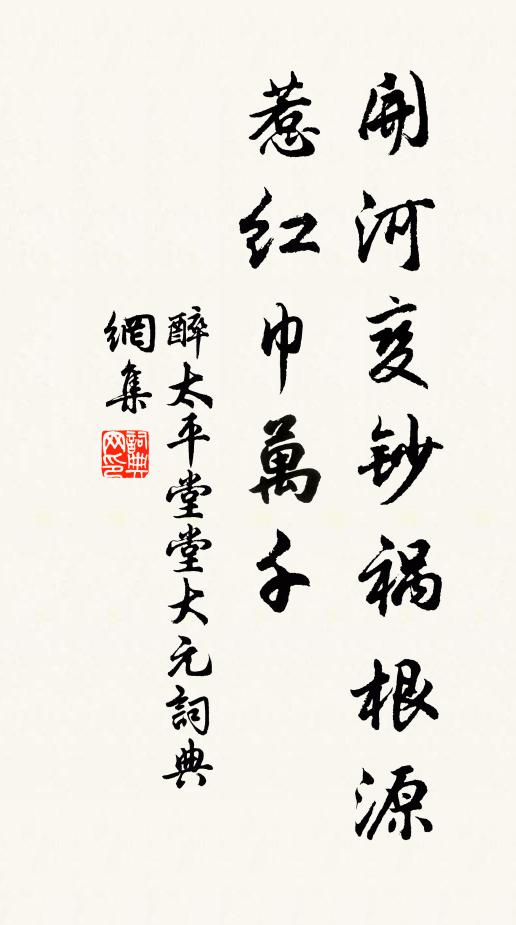 開河變鈔禍根源
惹紅巾萬千
醉太平堂堂大元詞典
網集
詞典
网印